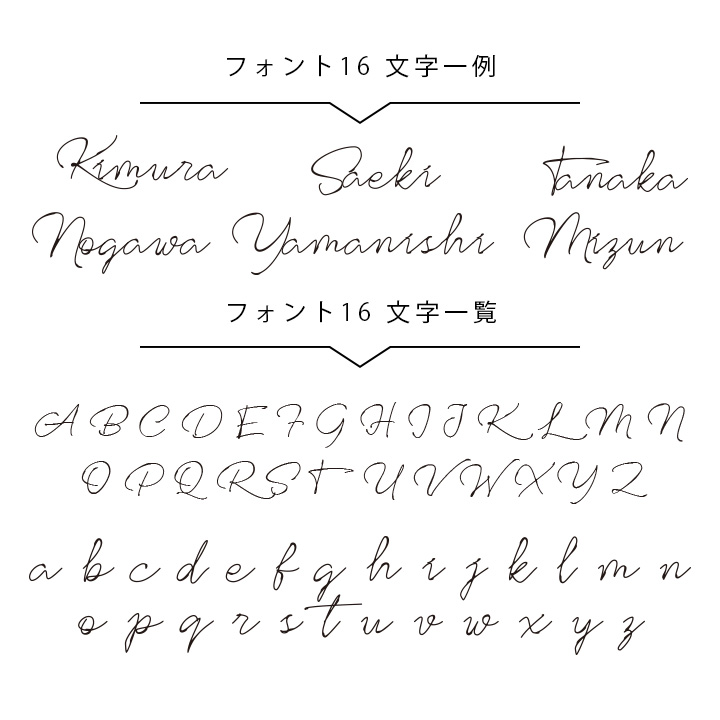 フォント16 文字一例
Kimura Saeki Tanaka
Nogawa Yamanishi Mizun
フォント16 文字一覧
A B C D E F G H I J K L M N
O P Q R S T U V W X Y Z
a b c d e f g h i j k l m n
o p q r s t u v w x y z